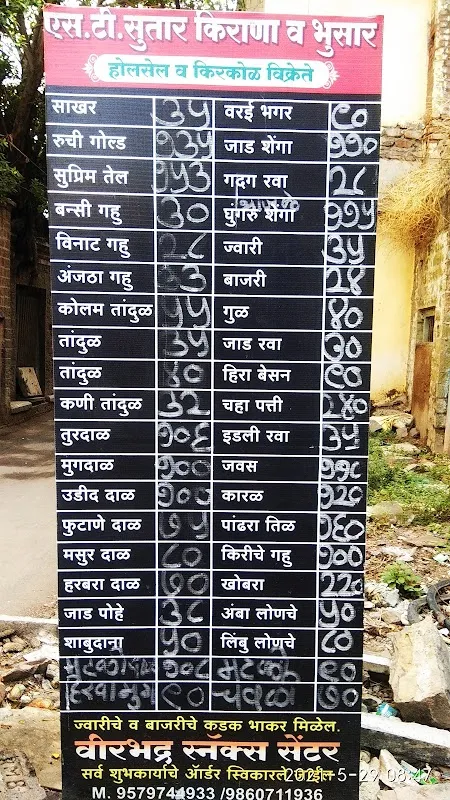 एस.टी.सुतार किराणा व भुसार
होलसेल व किरकोळ विक्रेते
साखर ३५ वरई भगर ९०
रुची गोल्ड १३५ जाड शेंगा ११०
सुप्रिम तेल १५३ गदग रवा २८
बन्सी गहु ३० घुंगरु शेंगा ११५
विनाट गहु २८ ज्वारी ३५
अंजठा गहु बाजरी २४
कोलम तांदुळ ५५ गुळ ४०
तांदुळ ३५ जाड रवा ३०
तांदुळ ४० हिरा बेसन
कणी तांदुळ ३२ चहा पत्ती
तुरदाळ १०६ इडली रवा ३५
मुगदाळ १०० जवस
उडीद दाळ १०८ कारळ
फुटाणे दाळ ७५ पांढरा तिळ
मसुर दाळ ८० किरीचे गहु १००
हरबरा दाळ ७० खोबरा २२०
जाड पोहे ३८ अंबा लोणचे ५०
शाबुदाना ५० लिंबु लोणचे ८०
१०८ मटकी ९०
हिरवा मुग ९० चवळी ७०
ज्वारीचे व बाजरीचे कडक भाकर मिळेल.
वीरभद्र स्नॅक्स सेंटर
सर्व शुभकार्याचे ऑर्डर स्विकारले जाईल
M. 9579744933 /9860711936
2021-5-29 08:47